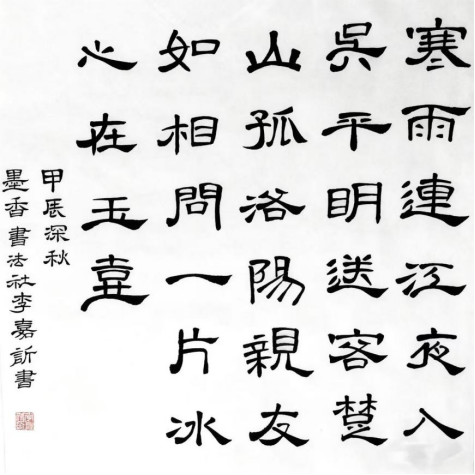 寒雨連江夜入
吳平眀送客楚
山孤洛陽親友
如相問一片冰
心在玉壺
甲辰深秋
墨香書法社李嘉訢書